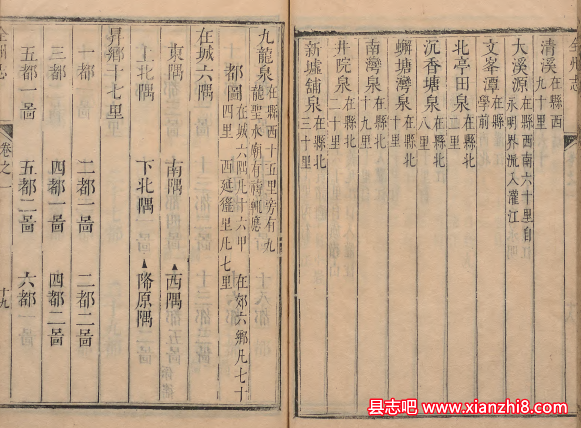 全州志
清溪在縣西九十里
大溪源在縣西南六十里自永明界流入灌江
文峯潭在縣學前
北亭田泉在縣北二里
沉香塘泉在縣北八里
蠏塘灣泉在縣北十里
南灣泉在縣北十九里
井院泉在縣北二十里
新墟舖泉在縣北三十里
九龍泉在縣西十五里旁有九龍里水廟有禱輒應
都圖在城六隅凡十六甲在郊六鄉凡七十四里西延㺜里凡七里
在城六隅
東隅 南隅 西隅
上北隅 下北隅 隆原隅
昇鄉十七里
一都 二都一啚 二都二啚
三都 四都一啚 四都二啚
五都一啚 五都二啚 六都
全州志 卷之一 十九
县志吧 www.xianzhi8.com